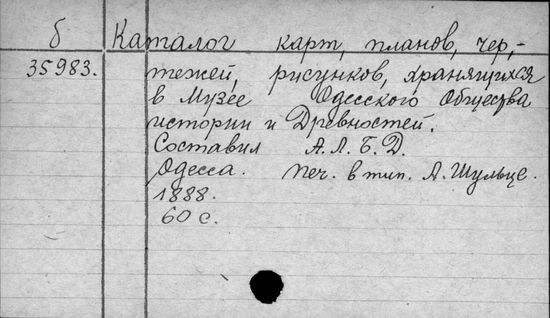 б Каталог карт, планов, чер,-
35983. тежей, рисунков, хранящихся
в Музее Одесского Общества
истории и Древностей.
Составил А. Л. Б. Д.
Одесса. Печ. в тип. А. Шульце.
1888.
60 с.